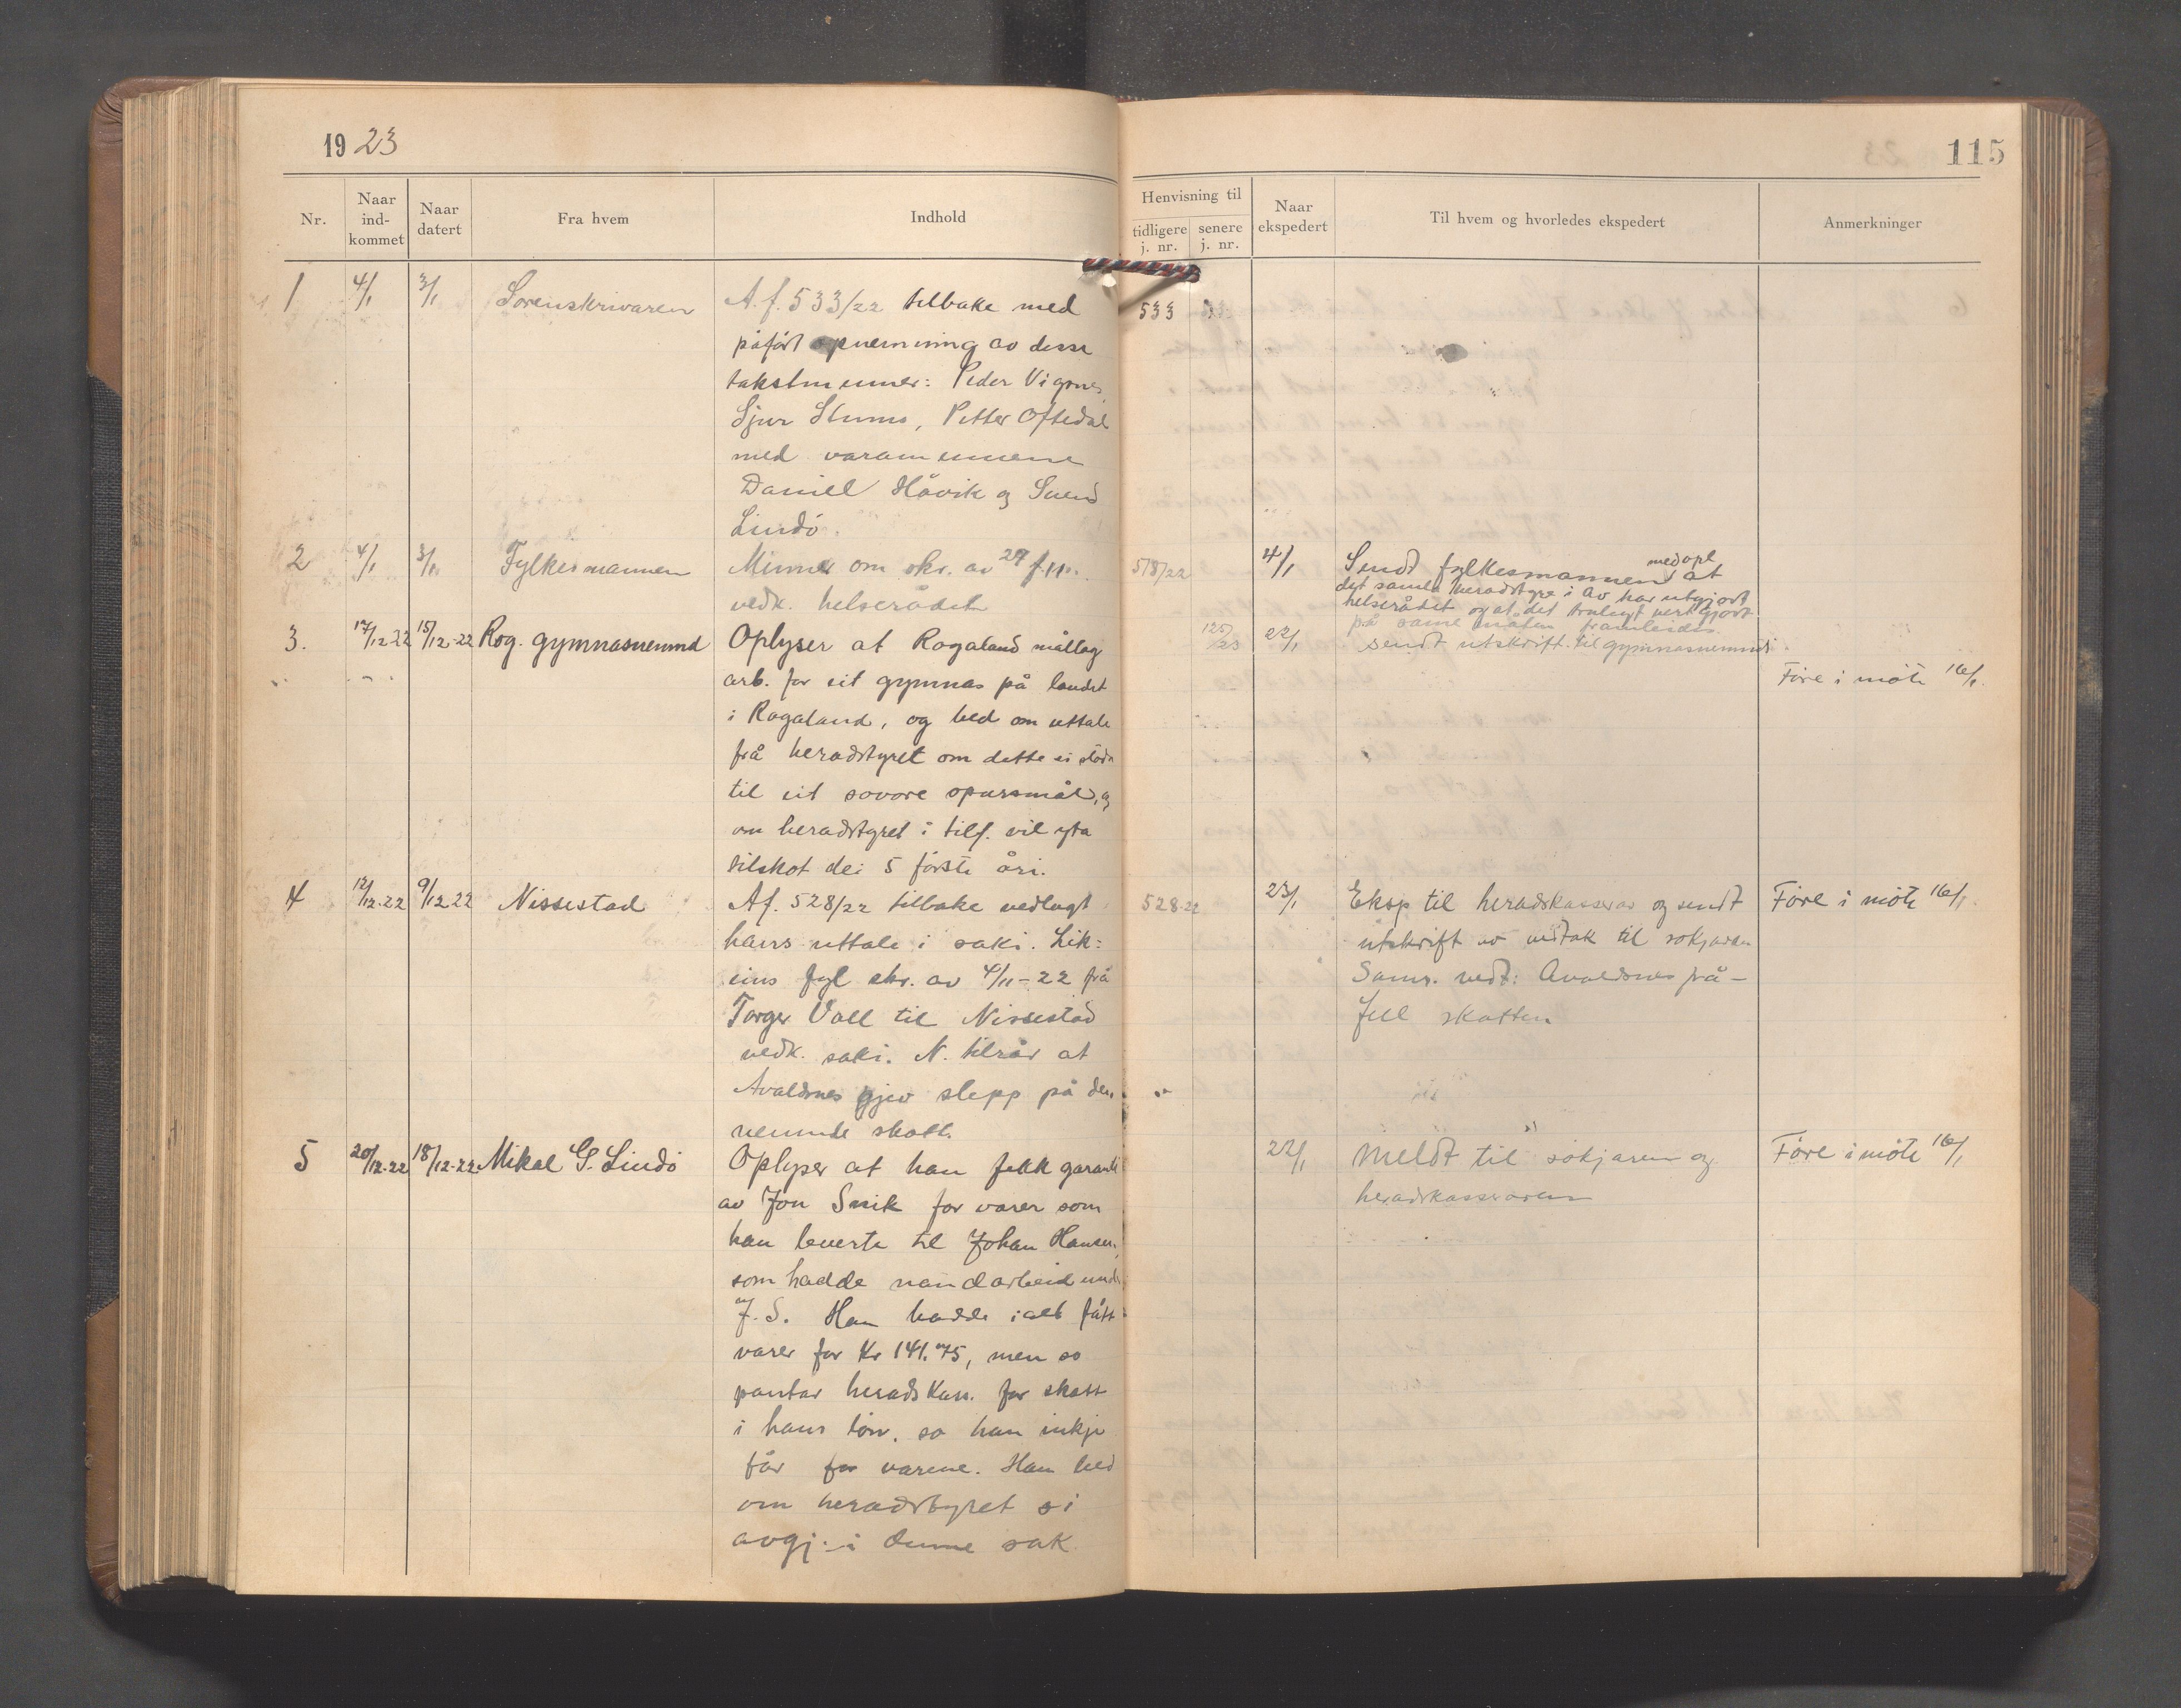 1923
115
Nr.
Naar ind-kommet
Naar datert
Fra hvem
Indhold
Henvisning til
tidligere j. nr.
senere j. nr.
Naar ekspedert
Til hvem og hvorledes ekspedert
Anmerkninger
1 4/1 3/1 Sorenskrivaren A.f. 533/22 tilbake med 533
påført opnemning av desse
takstmenner: Peder Vignes,
Sjur Stums, Petter Oftedal
med varamennene
Daniel Håvik og Svend
Lindö.
2 4/1 3/1 Fylkesmannen Minner om skr. av 29/ f.m. 518/22 4/1 Sendt fylkesmannen med opl at
vedk. helserådet
det samla heradstyre i Av. har utgjort
helserådet og at det truleigt vert gjort
på same måten framleides.
3. 17/12-22 15/12-22 Rog. gymnasnemnd Oplyser at Rogaland mållag 125/23 22/1 sendt utskrift til gymnasnemndi.
arb. for eit gymnas på landet Före i möte 16/1.
i Rogaland, og bed om uttale
frå heradstyret om dette ei
til eit sovore spursmål, og
om heradstyret i tilf. vil yta
tilskot dei 5 förste åri.
4 12/12-22 9/12 22 Nissestad Af. 528/22 tilbake vedlagt 528-22 23/1 Eksp til heradskasserar og sendt Före i möte 16/1.
hans uttale i saki. Lik-
utskrift av vedtak til sokjaren
eins fyl skr. av 4/11-22 frå
Sams. vedt: Avaldsnes frå-
Torger Vall til Nissestad
fell skatten
vedk. saki. N. tilrår at
Avaldsnes gjev slepp på den
nemnde skatt.
5 20/12-22 18/12-22 Mikal G. Lindö Oplyser at han fekk garanti 22/1 Meldt til sökjaren og Före i möte 16/1
av Jon Snik for varer som
heradskasseraren
han leverte til Johan Hansen,
som hadde vandarbeid under
J. S. Han hadde ialt fått
varer for Kr 141.75, men so
pantar heradskass. for skatt
i hans lön, so han inkje
får for varene. Han bed
om heradstyret si
avgj. i denne sak